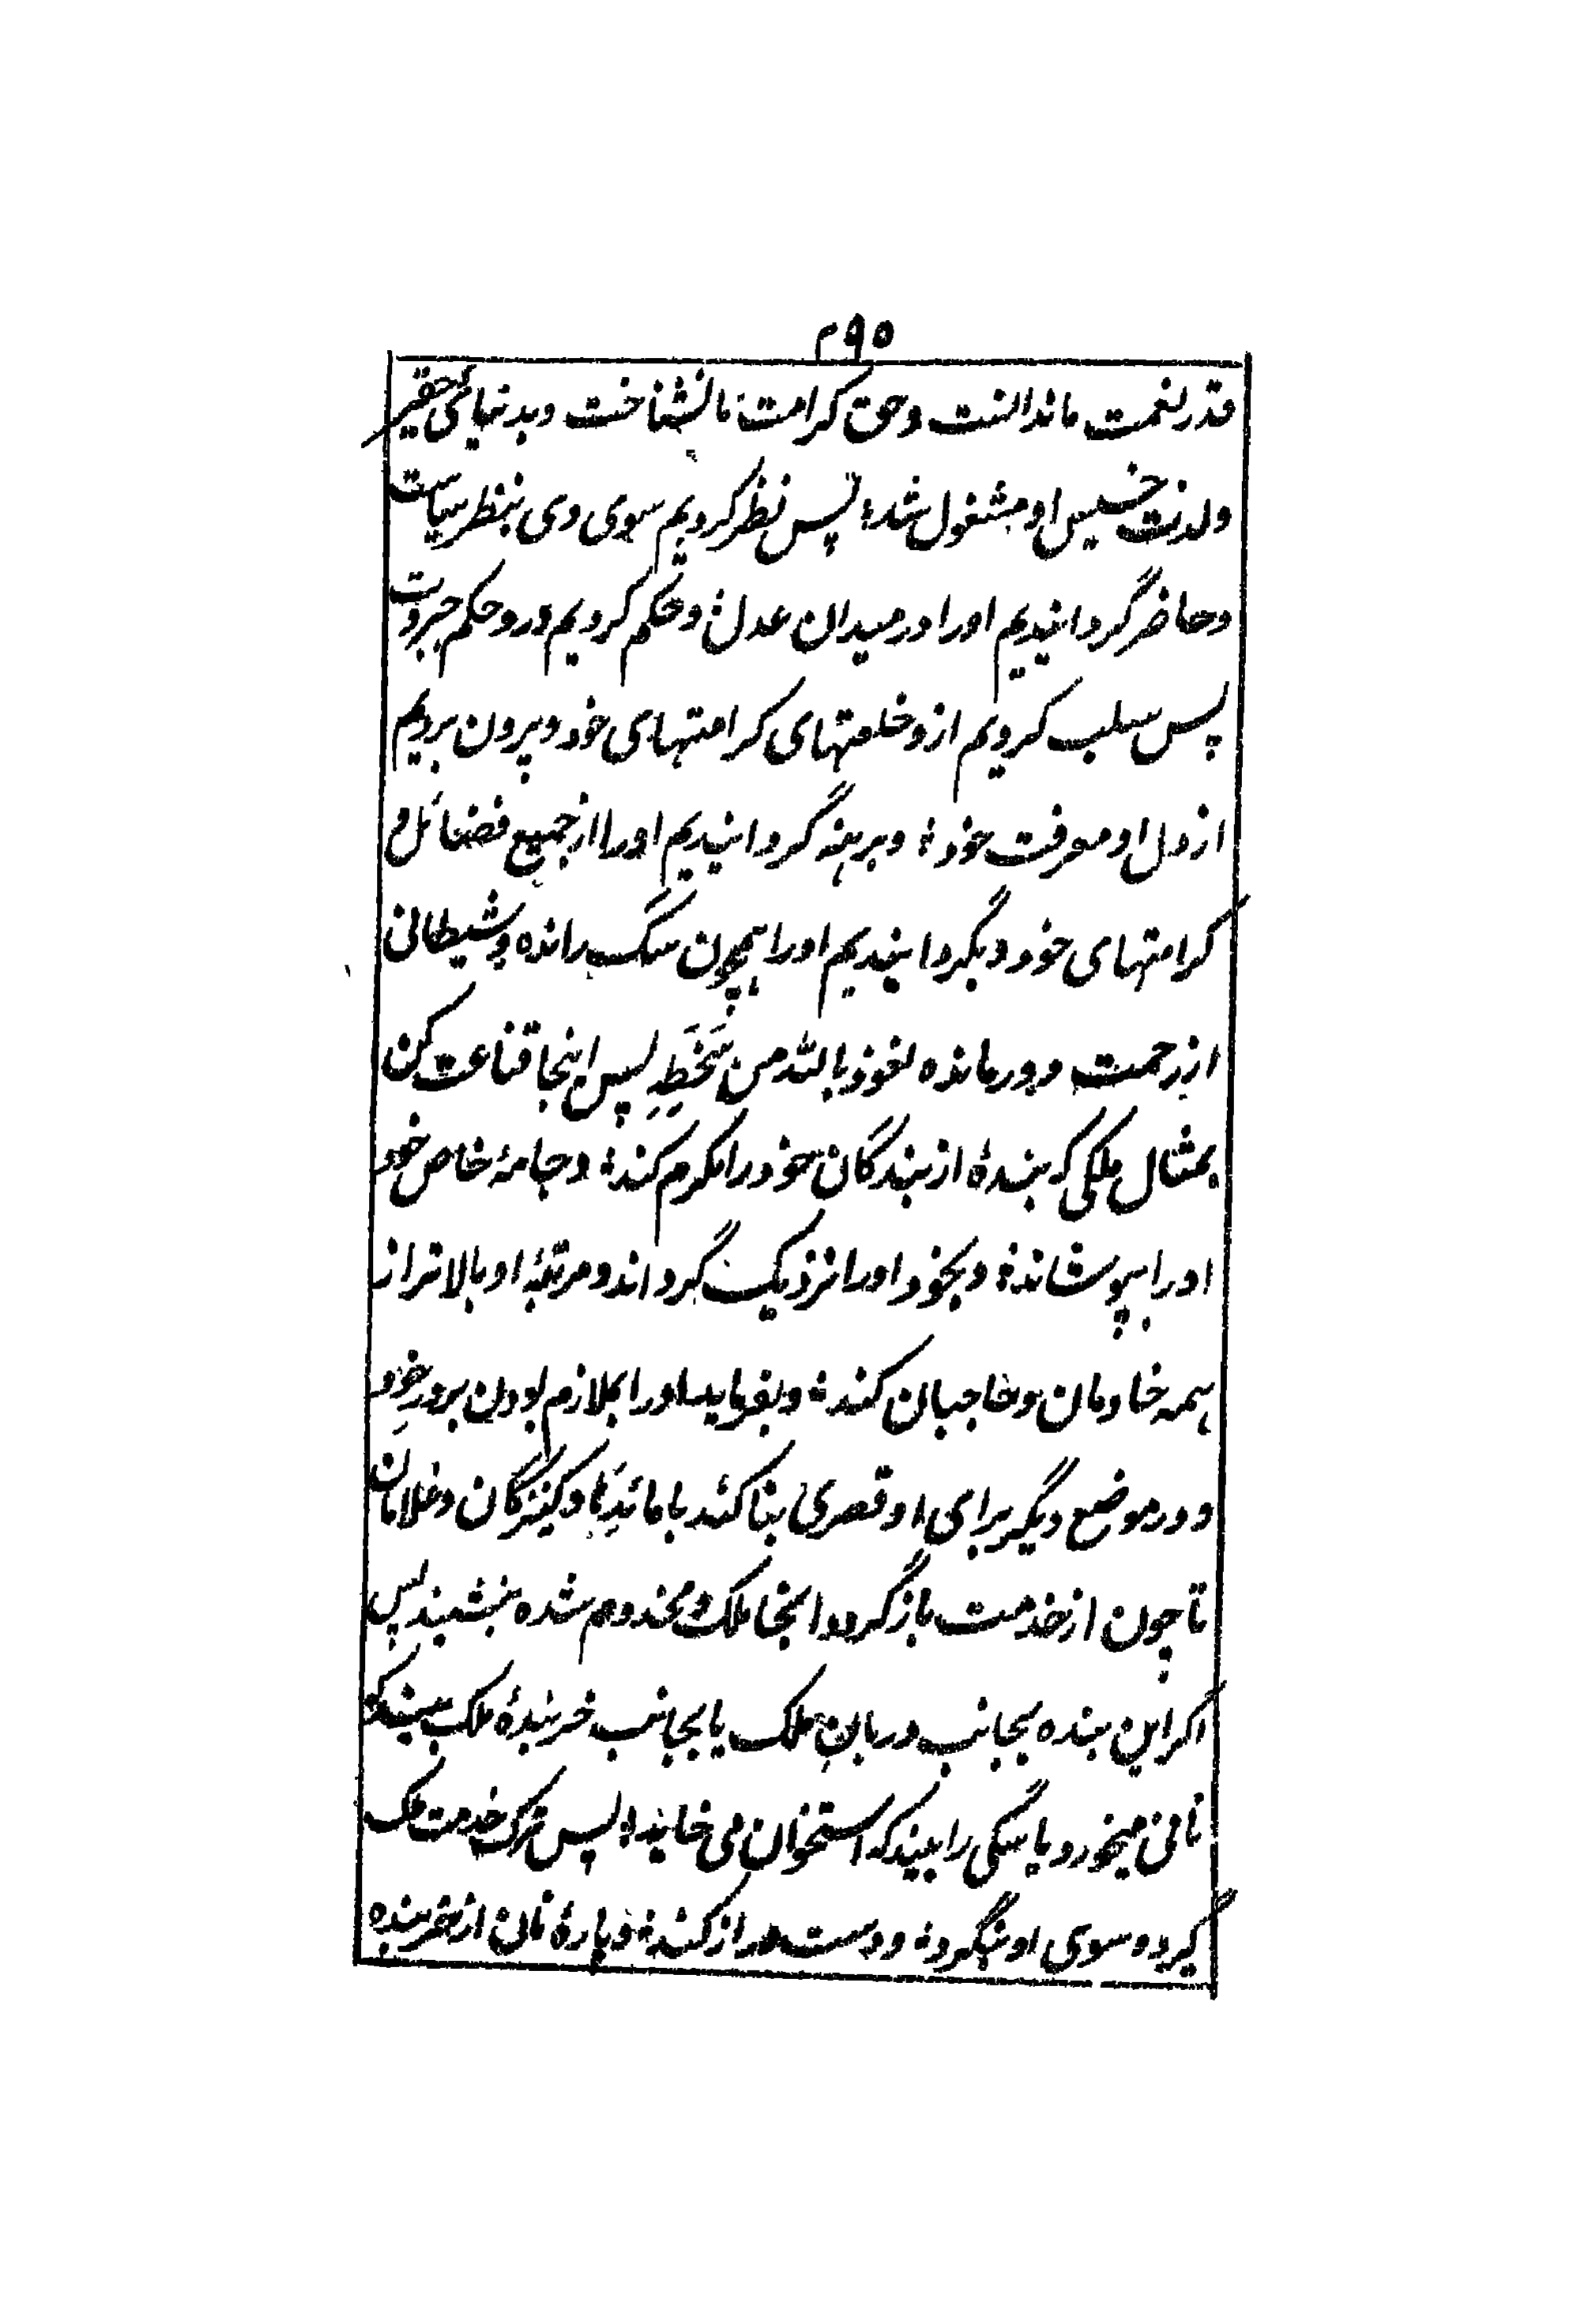 ۲۹۵
قدر نعمت ما ندانست وحق کرامت ما نشناخت وبدنیائی حقیر
ولذت خسیس او مشغول شد؛ پس نظر کردیم سوی وی بنظر سیاست
وحاضر گردانیدیم اورا در میدان عدل؛ وحکم کردیم درو حکم جبروت
پس سلب کردیم ازو خلعتهای کرامتهای خود وبیرون بردیم
از دل او معرفت خود؛ وبرہنہ گردانیدیم اورا از جمیع فضائل و
کرامتهای خود وبگردانیدیم اورا ہمچون سگ راندہ وشیطانی
از رحمت دور ماندہ نعوذ باللہ من سَخَطِہِ پس اینجا قناعت کن
بمثال ملکی کہ بندۂ از بندگان خود را مکرم کند؛ وجامۂ خاص خود
اورا بپوشاند؛ وبخود اورا نزدیک گرداند ومرتبۂ او بالاتر از
ہمہ خادمان وحاجبان کند؛ وبفرماید اورا بملازم بودن بر درِ خود
ودر موضع دیگر برای او قصری بنا کند با مائدہا وکنیزگان وغلامان
تا چون از خدمت باز گردد اینجا ملک ومخدوم شدہ بنشیند پس
اگر این بندہ بجانب دربان ملک یا بجانب خربندۂ ملک ببیند کہ
نانی میخورد یا سگی را بیند کہ استخوان می خاید؛ پس ترک خدمت ملک
گیرد وسوی او بنگرد؛ ودست دراز کند؛ وپارۂ نان از خربندہ